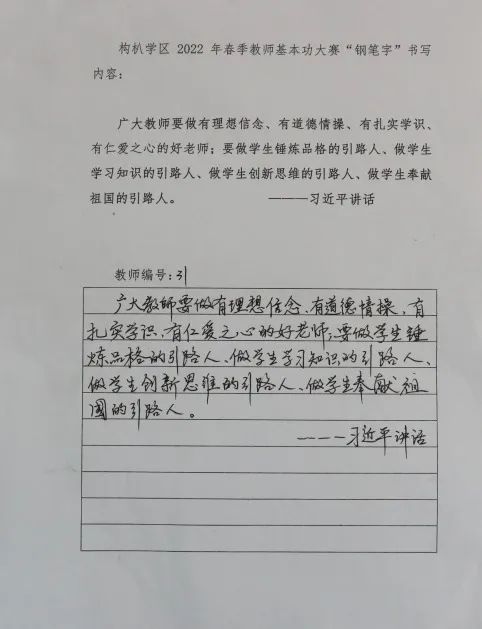 构朳学区 2022 年春季教师基本功大赛“钢笔字”书写
内容：
广大教师要做有理想信念、有道德情操、有扎实学识、
有仁爱之心的好老师；要做学生锤炼品格的引路人、做学生
学习知识的引路人、做学生创新思维的引路人、做学生奉献
祖国的引路人。 ———习近平讲话
教师编号：31
广大教师要做有理想信念、有道德情操、有
扎实学识、有仁爱之心的好老师；要做学生锤
炼品格的引路人、做学生学习知识的引路人、
做学生创新思维的引路人、做学生奉献祖
国的引路人。
————习近平讲话